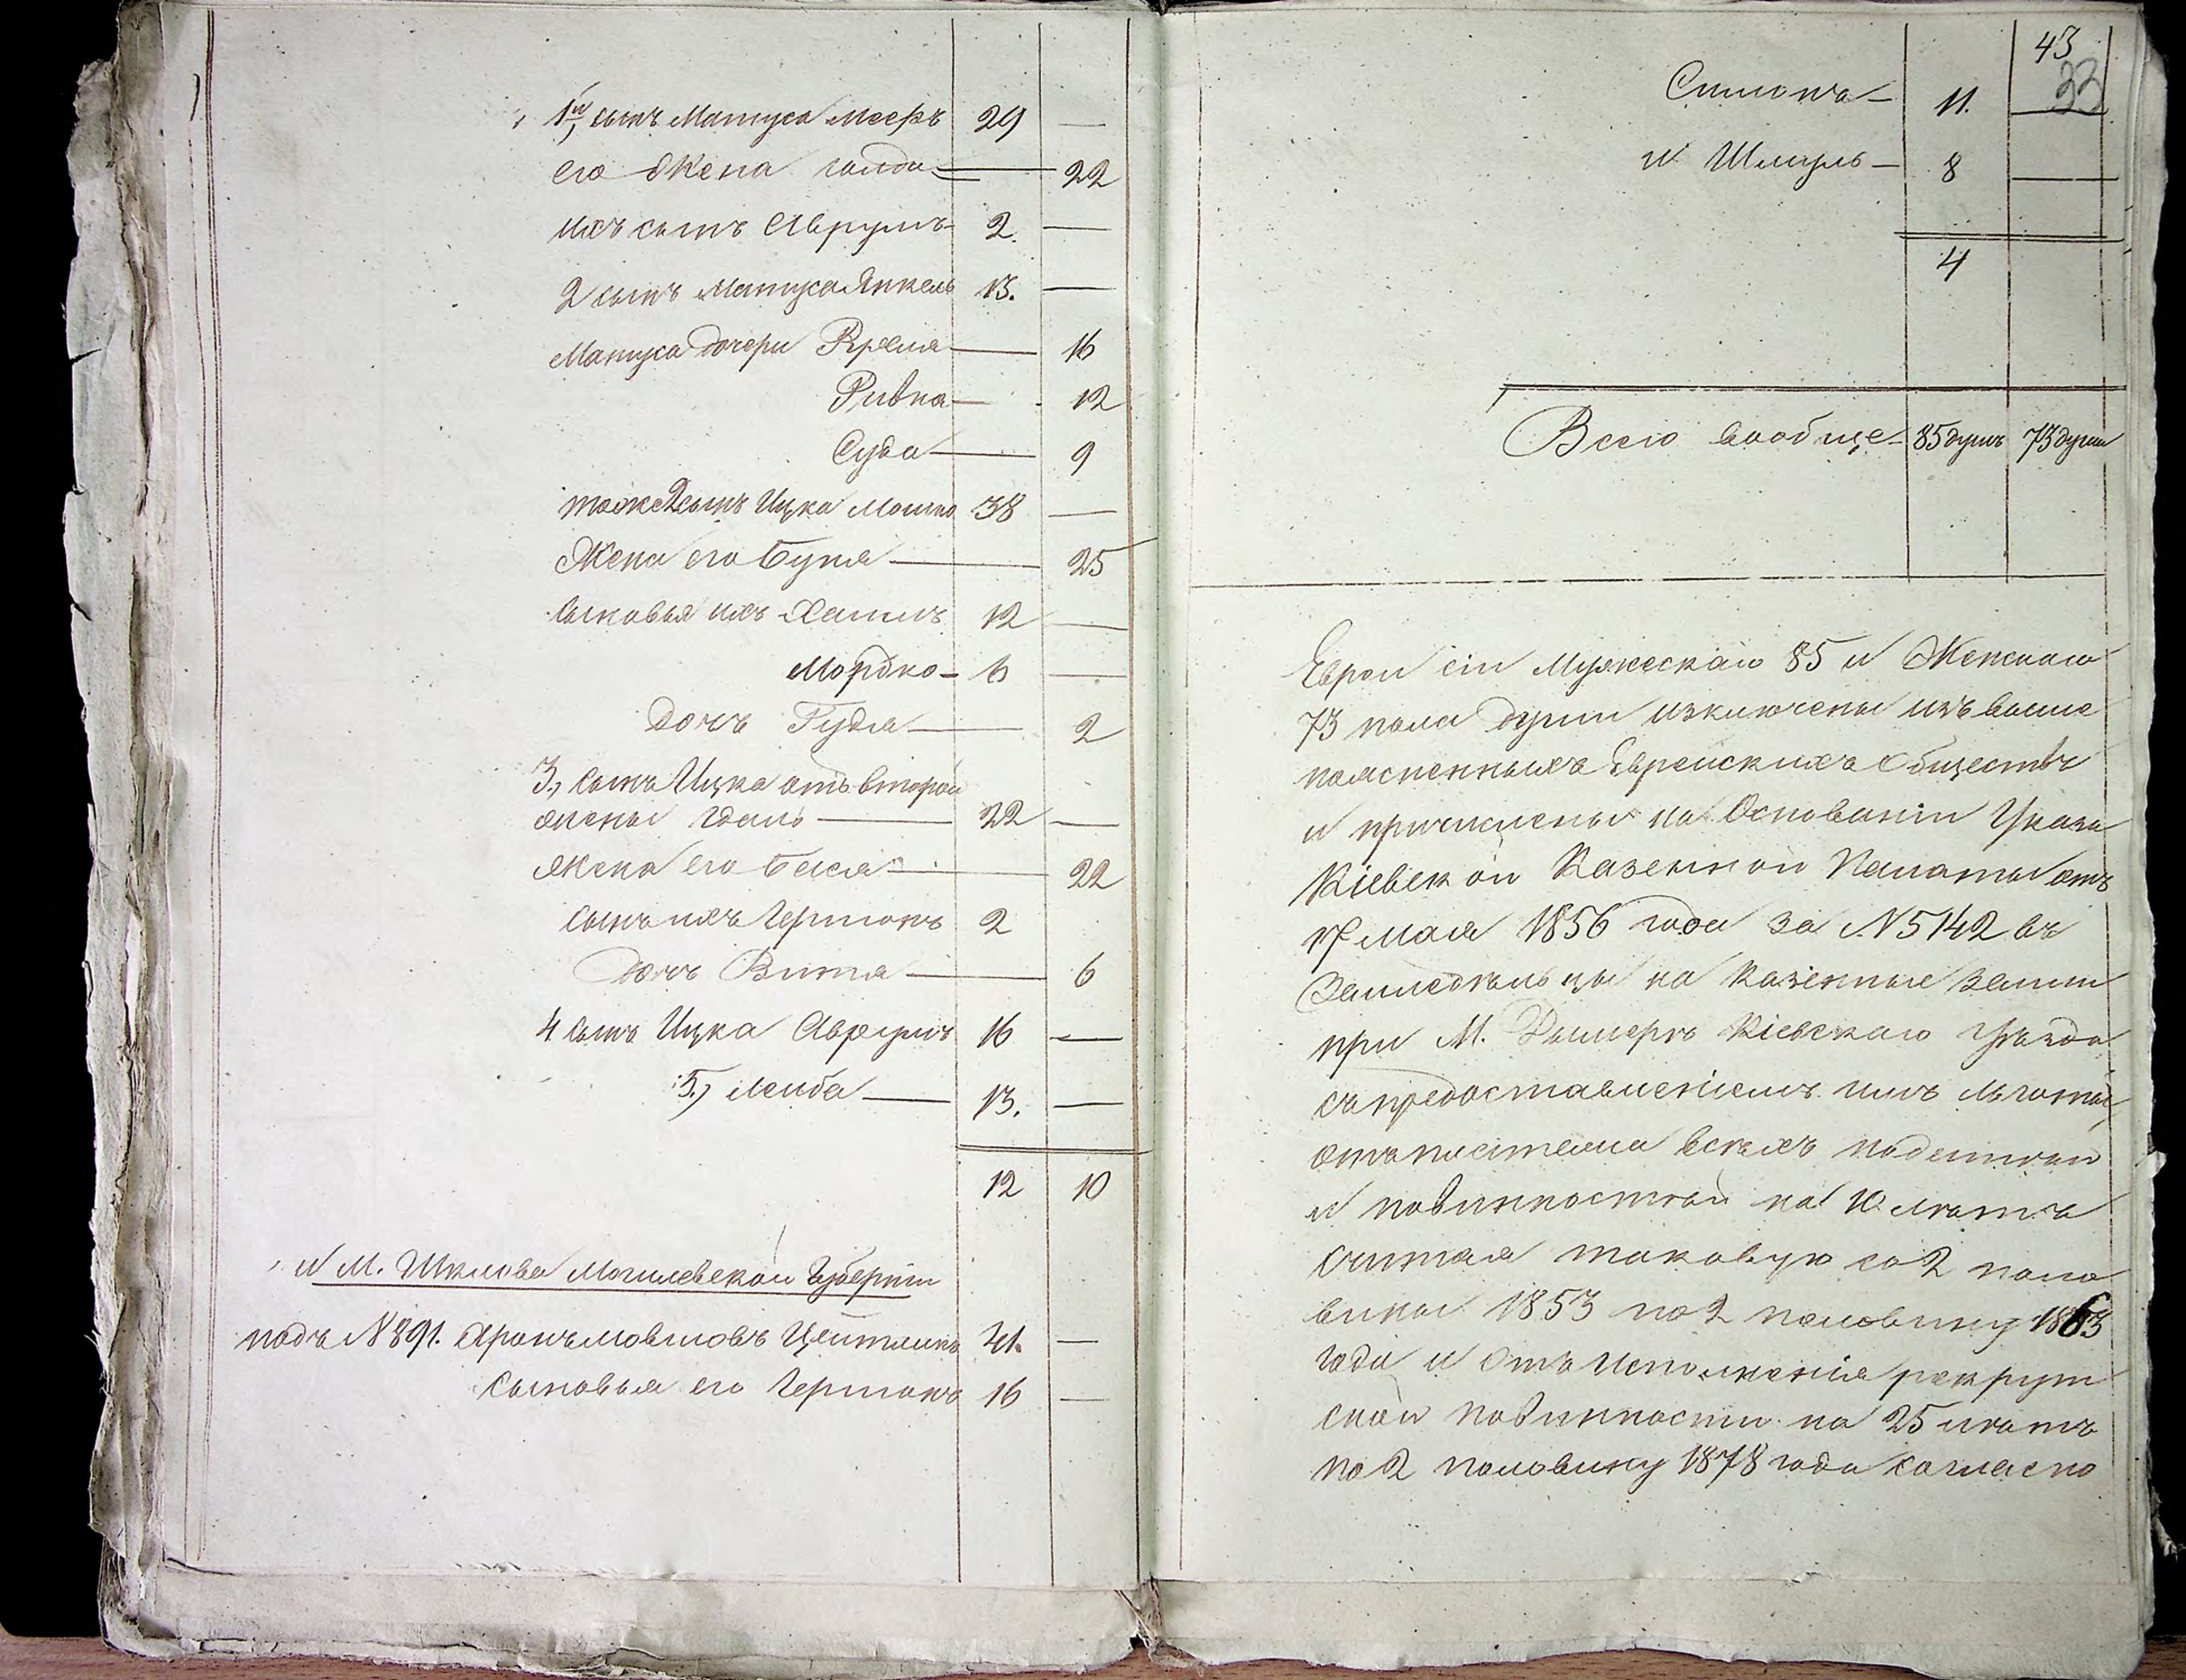 1й, сынъ Матуса Мееръ 29 —
его жена Голда — 22
ихъ сынъ Аврумъ 2. —
2 сынъ Матуса Янкель 13. —
Матуса дочери Крейня — 16
Ривка — 12
Суда — 9
тоже 2 сынъ Ицка Мошко 38 —
Жена его Буня — 25
Сыновья ихъ Хаимъ 12 —
Мордко — 6 —
Дочь Гудля — 2
3, Сынъ Ицка отъ второй
жены 22 —
Жена его Бася — 22
Сынъ ихъ Гершонъ 2
Дочь Витя — 6
4 сынъ Ицка Аврумъ 16 —
5, Лейба — 13. —
12 10
и М. Шклова Могилевской Губерніи
подъ N 891. Аронъ Мовшовъ Цейтлинъ 41. —
Сыновья его Гершонъ 16 —
43
33
Симонъ — 11. —
и Шмуль — 8 —
4
Всего вообще — 85 душъ 73 души
Евреи сіи Мужескаго 85 и Женскаго
73 пола души изключены изъ выше
поясненныхъ Еврейскихъ Обществъ
и причислены на Основаніи Указа
Кіевской Казенной Палаты отъ
17 Мая 1856 года за N 5142 въ
Земледельцы на казенные земли
при М. Дымерѣ Кіевскаго Уѣзда
съ предоставленіемъ имъ льготы,
отъ платежа всѣхъ податей
и повинностей на 10 лѣтъ
считая таковую со 2 поло
вины 1853 по 2 половину 1863
года и отъ исполненія рекрут
ской повинности на 25 лѣтъ
по 2 половину 1878 года согласно